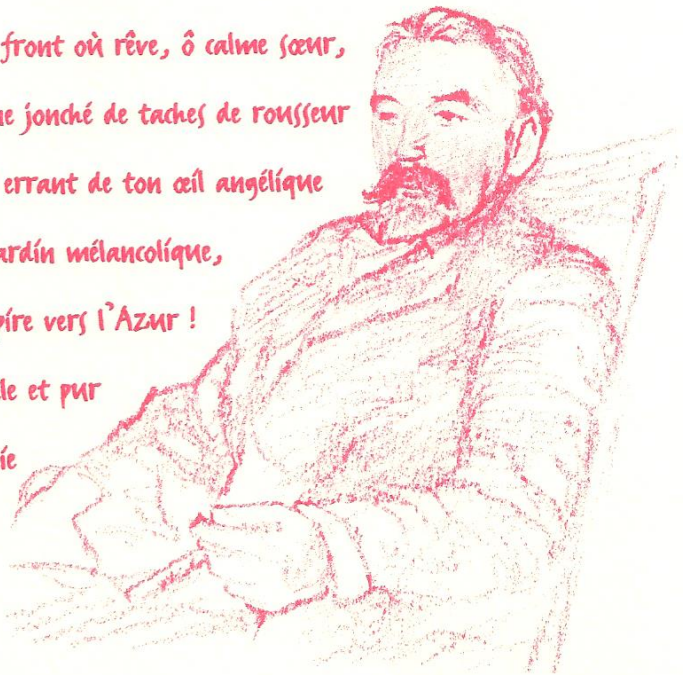 front où rêve, ô calme sœur,
ne jonché de taches de rousseur
errant de ton œil angélique
ardin mélancolique,
pire vers l'Azur !
le et pur
ie